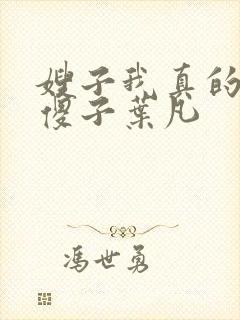 嫂子我真的
傻子葉凡
馮世勇